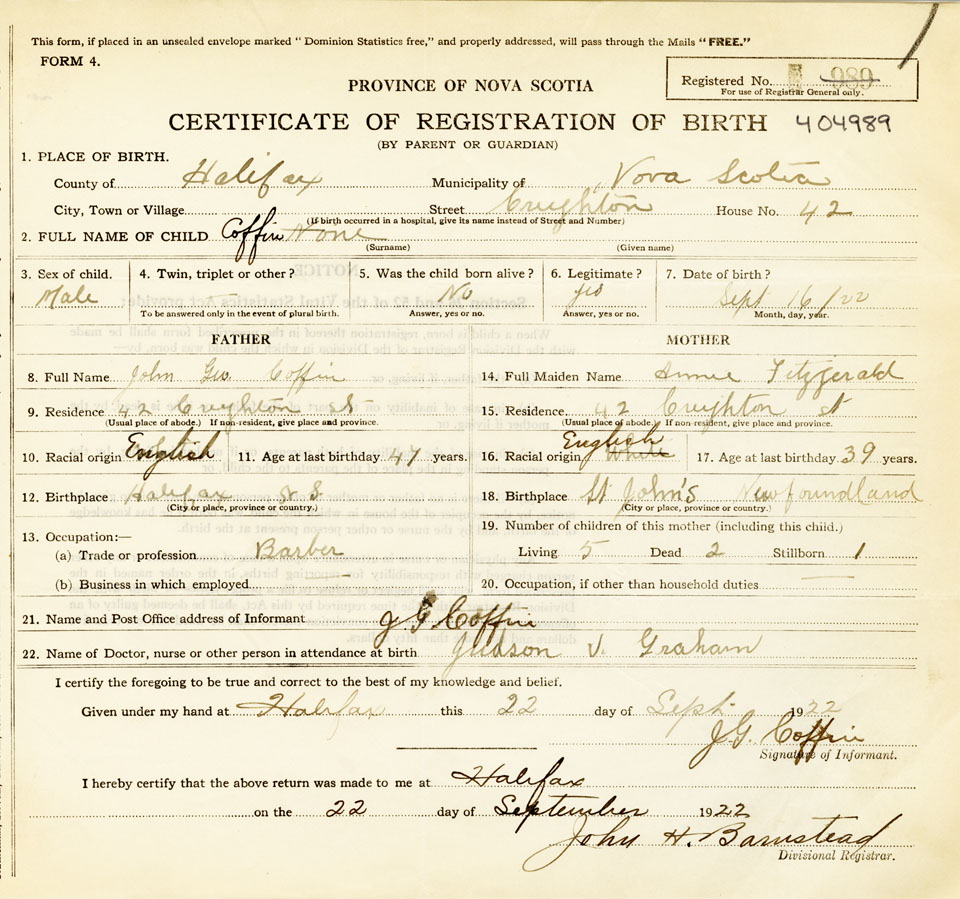 This form, if placed in an unsealed envelope marked "Dominion Statistics free," and properly addressed, will pass through the Mails "FREE."
FORM 4.
Registered No. 989
For use of Registrar General only.
PROVINCE OF NOVA SCOTIA
CERTIFICATE OF REGISTRATION OF BIRTH 404989
(BY PARENT OR GUARDIAN)
1. PLACE OF BIRTH.
County of Halifax Municipality of Nova Scotia
City, Town or Village Street Creighton House No. 42
(If birth occurred in a hospital, give its name instead of Street and Number)
2. FULL NAME OF CHILD Coffin None
(Surname) (Given name)
3. Sex of child. 4. Twin, triplet or other? 5. Was the child born alive? 6. Legitimate? 7. Date of birth?
Male — No yes Sept 16/22
To be answered only in the event of plural birth. Answer, yes or no. Answer, yes or no. Month, day, year.
FATHER MOTHER
8. Full Name John Geo. Coffin 14. Full Maiden Name Annie Fitzgerald
9. Residence 42 Creighton st 15. Residence 42 Creighton st
(Usual place of abode.) If non-resident, give place and province. (Usual place of abode.) If non-resident, give place and province.
10. Racial origin English 11. Age at last birthday 47 years. 16. Racial origin English White 17. Age at last birthday 39 years.
12. Birthplace Halifax N S 18. Birthplace St John's Newfoundland
(City or place, province or country.) (City or place, province or country.)
13. Occupation:— 19. Number of children of this mother (including this child.)
(a) Trade or profession Barber Living 5 Dead 2 Stillborn 1
(b) Business in which employed — 20. Occupation, if other than household duties —
21. Name and Post Office address of Informant J G Coffin
22. Name of Doctor, nurse or other person in attendance at birth Judson V. Graham
I certify the foregoing to be true and correct to the best of my knowledge and belief.
Given under my hand at Halifax this 22 day of Sept. 1922
J G. Coffin
Signature of Informant.
I hereby certify that the above return was made to me at Halifax
on the 22 day of September 1922
John H. Barnstead
Divisional Registrar.